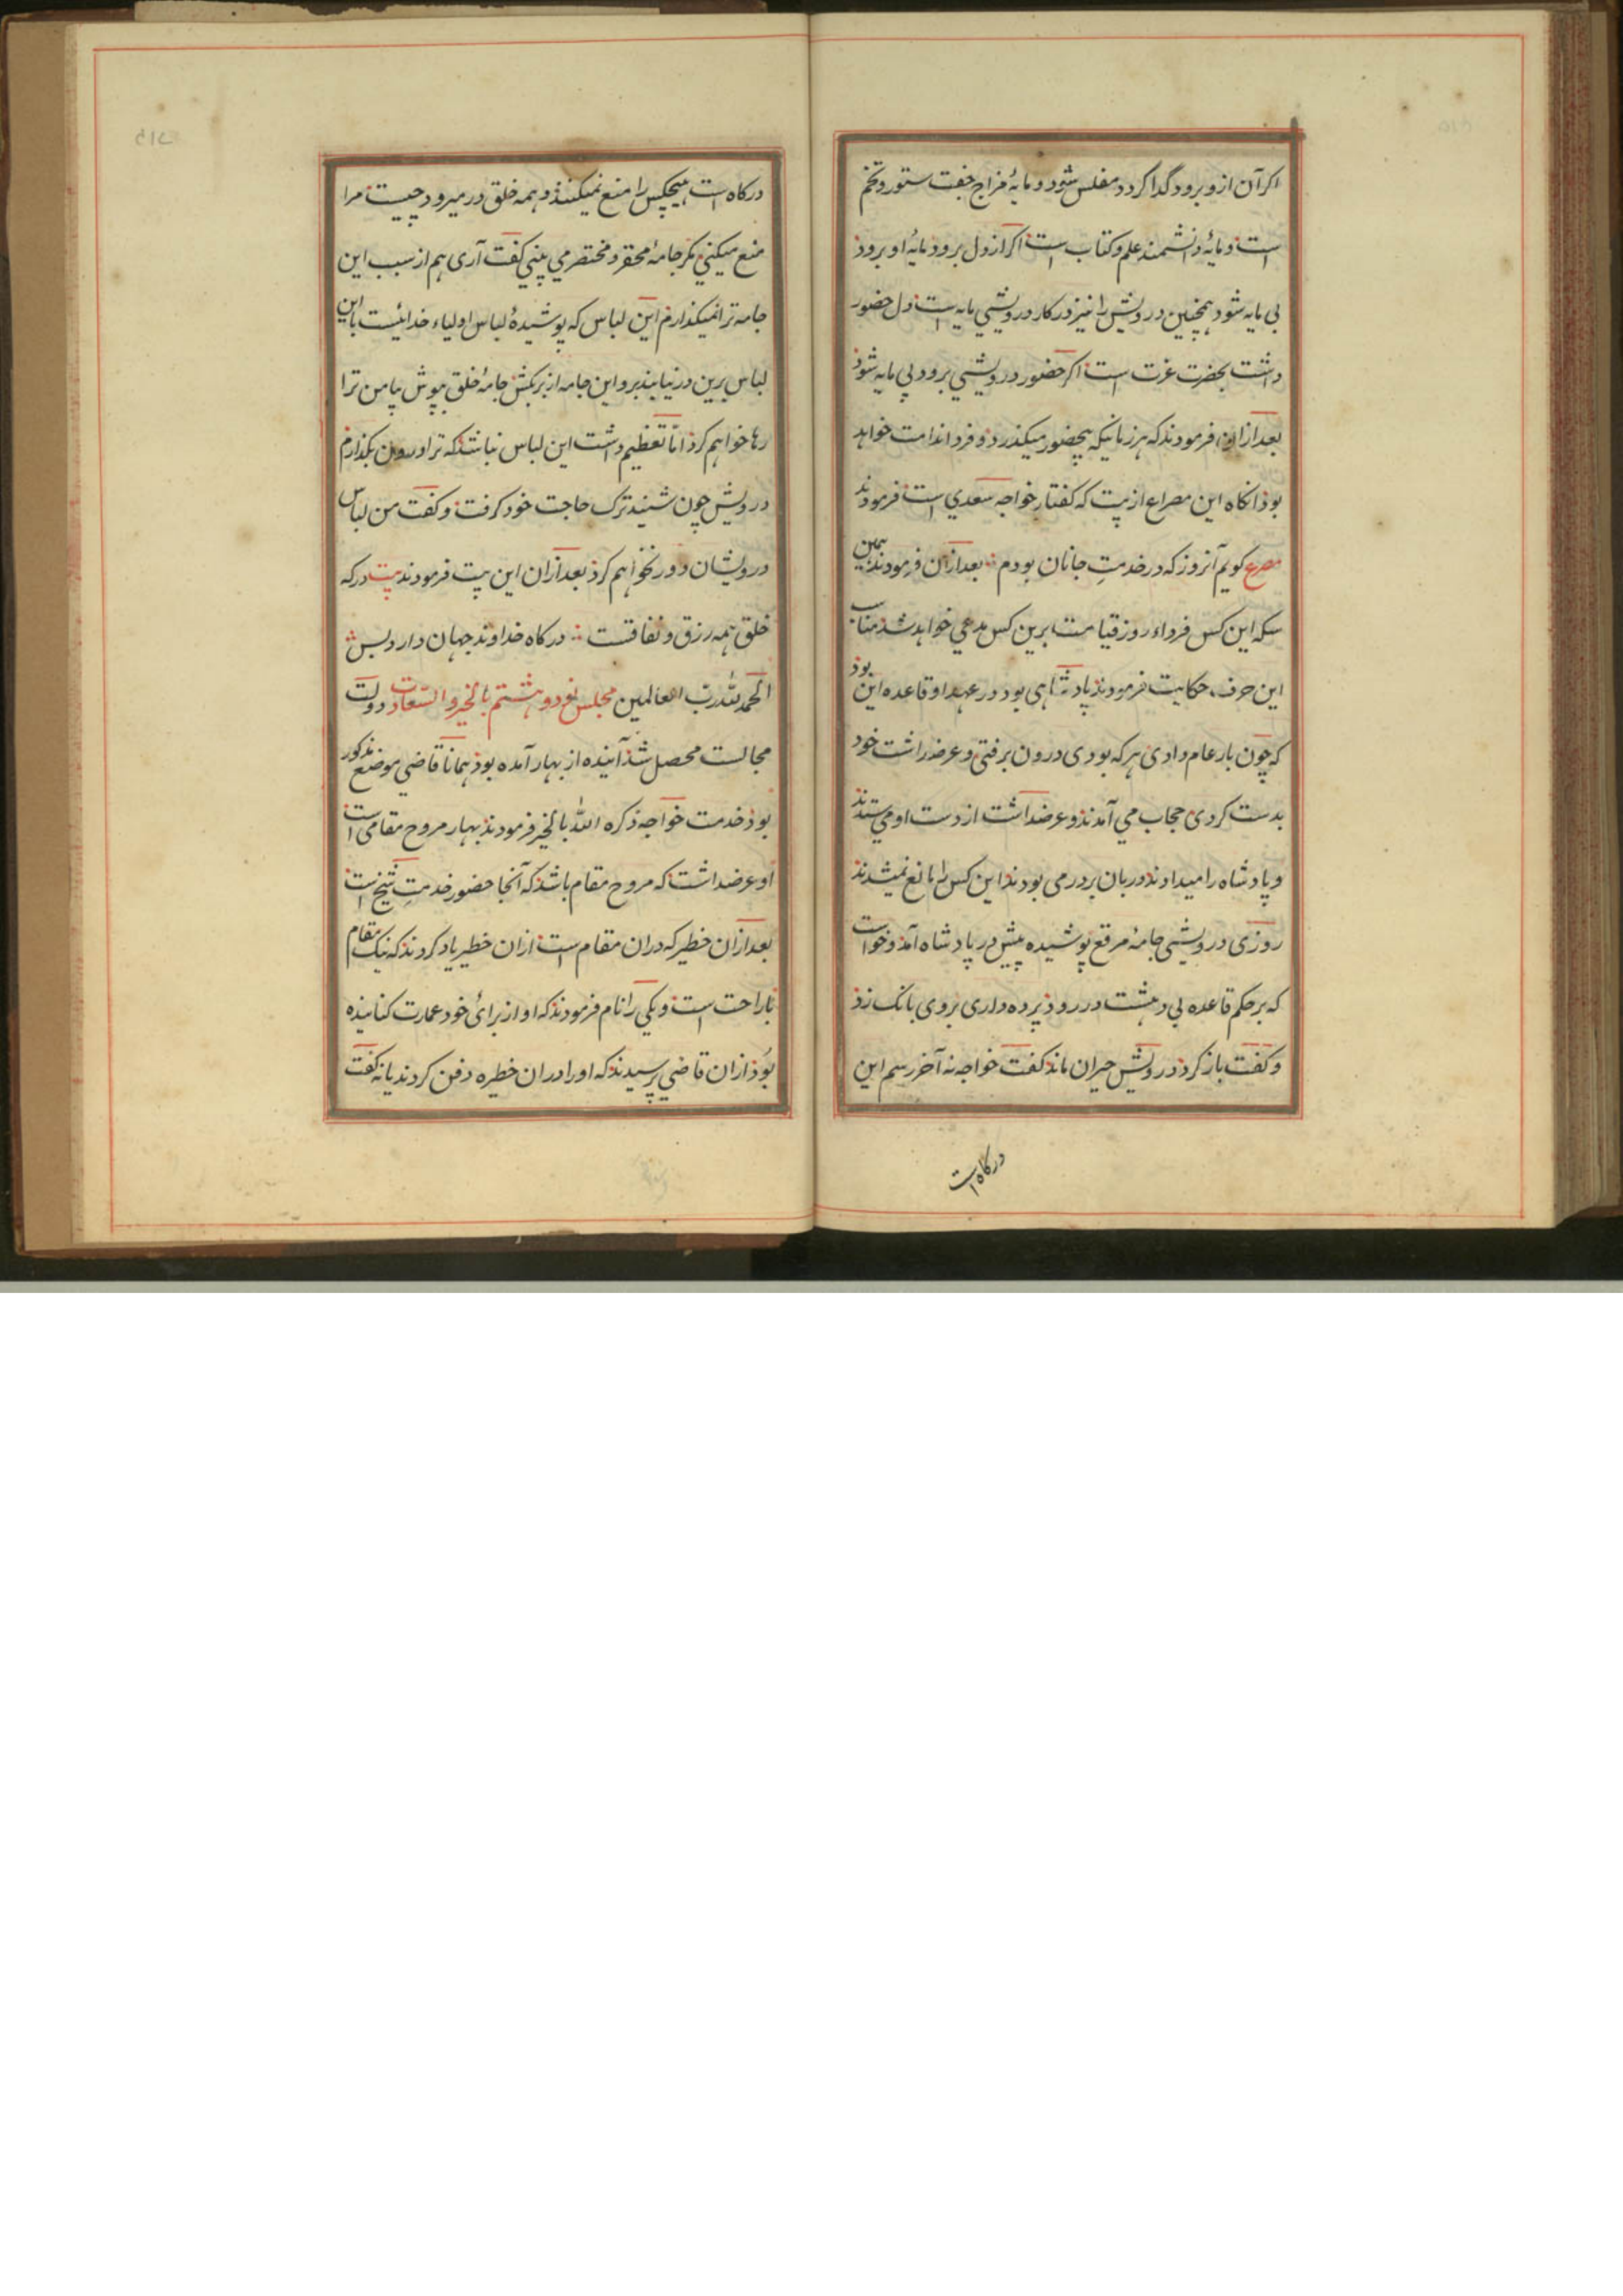 اکر آن ازو برود گدا کردد مفلس شود و مایهٔ مزاج جفت ستور و تخم
است و مایهٔ دانشمند علم و کتاب است اکر از دل برود مایهٔ او برود
بی مایه شود همچنین درویش را نیز در کار درویشی مایه است دل حضور
داشت بحضرت عزت است اکر حضور درویشی برود بی مایه شود
بعد ازان فرمودند که هر زمانیکه بیحضور میکذرد و فردا ندامت خواهد
بود انکاه این مصراع از بیت که کفتار خواجه سعدی است فرمودند
مصرع کویم آنروز که در خدمتِ جانان بودم بعد ازان فرمودند همین
سکه این کس فرداء روز قیامت برین کس مدعی خواهد شد مناسب
این حرف حکایت فرمودند پادشاهی بود در عهد او قاعده این بود
که چون بار عام دادی هر که بودی درون برفتی و عرضداشت خود
بدست کردی حجاب می آمدند و عرضداشت از دست او می ستدند
و پادشاه را میدادند دربان بر در می بودند این کس را مانع نمیشدند
روزی درویشی جامهٔ مرقع پوشیده پیش در پادشاه آمد و خواست
که بر حکم قاعده بی دهشت در رود پرده داری بروی بانک زد
و کفت باز کرد درویش حیران ماند کفت خواجه نه آخر رسم این
درکاه است
درکاه است هیچکس را منع نمیکنند و همه خلق در میرود چیست مرا
منع میکنی مکر جامهٔ محقر و مختصر می بینی کفت آری هم از سبب این
جامه ترا نمیکذارم این لباس که پوشیدهٔ لباس اولیاء خدائیست باین
لباس برین در نیایند برو این جامه از بر بکش جامهٔ خلق بپوش بیا من ترا
رها خواهم کرد اما تعظیم داشت این لباس نباشد که ترا درون بکذارم
درویش چون شنید ترک حاجت خود کرفت و کفت من لباس
درویشان دور نخواهم کرد بعد ازان این بیت فرمودند بیت درکه
خلق همه رزق و نفاقت درکاه خداوند جهان دارد بس
الحمد لله ربّ العالمین مجلس نود و هشتم بالخیر و السّعادت دولت
مجالست محصل شد آینده از بهار آمده بود همانا قاضی موضع مذکور
بود خدمت خواجه ذکره الله بالخیر فرمودند بهار مروح مقامی است
او عرضداشت که مروح مقام باشد که آنجا حضور خدمتِ شیخ است
بعد ازان خطیر که دران مقام است ازان خطیر یاد کردند که نیک مقام
باراحت است و یکی را نام فرمودند که او از برائ خود عمارت کنانیده
بود ازان قاضی پرسیدند که او را دران خطره دفن کردند یا نه کفت